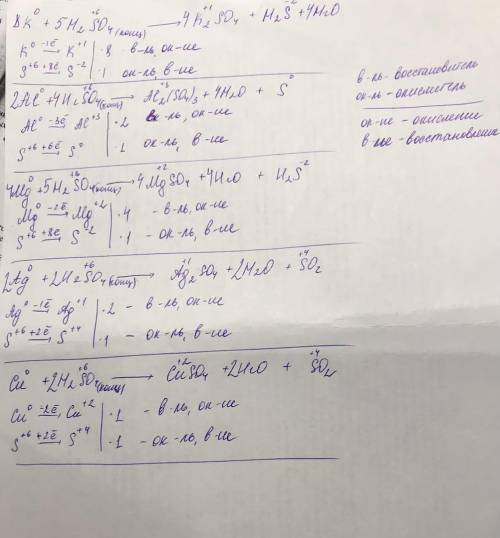 8K⁰ + 5H₂S⁺⁶O₄(конц) → 4K₂⁺¹SO₄ + H₂S⁻² + 4H₂O
K⁰ -1ē→ K⁺¹ | ·8 в-ль, ок-ие
S⁺⁶ +8ē→ S⁻² | ·1 ок-ль, в-ие
в-ль - восстановитель
ок-ль - окислитель
ок-ие - окисление
в-ие - восстановление
2Al⁰ + 4H₂S⁺⁶O₄(конц) → Al₂⁺³(SO₄)₃ + 4H₂O + S⁰
Al⁰ -3ē→ Al⁺³ | ·2 в-ль, ок-ие
S⁺⁶ +6ē→ S⁰ | ·1 ок-ль, в-ие
4Mg⁰ + 5H₂S⁺⁶O₄(конц) → 4Mg⁺²SO₄ + 4H₂O + H₂S⁻²
Mg⁰ -2ē→ Mg⁺² | ·4 - в-ль, ок-ие
S⁺⁶ +8ē→ S⁻² | ·1 - ок-ль, в-ие
2Ag⁰ + 2H₂S⁺⁶O₄(конц) → Ag₂⁺¹SO₄ + 2H₂O + S⁺⁴O₂
Ag⁰ -1ē→ Ag⁺¹ | ·2 - в-ль, ок-ие
S⁺⁶ +2ē→ S⁺⁴ | ·1 - ок-ль, в-ие
Cu⁰ + 2H₂S⁺⁶O₄(конц) → Cu⁺²SO₄ + 2H₂O + S⁺⁴O₂
Cu⁰ -2ē→ Cu⁺² | ·1 - в-ль, ок-ие
S⁺⁶ +2ē→ S⁺⁴ | ·1 - ок-ль, в-ие